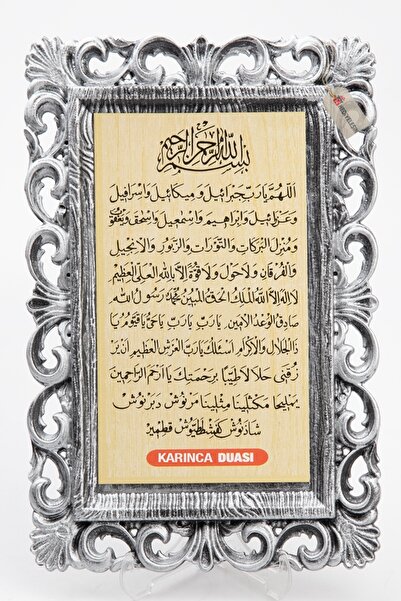 بسم الله الرحمن الرحيم
اللهم يا رب جبرائيل وميكائيل واسرافيل
وعزرائيل وابراهيم واسمعيل واسحق ويعقوب
ومنزل البركات والتورات والزبور والانجيل
والفرقان ولا حول ولا قوة الا بالله العلى العظيم
لا اله الا الله الملك الحق المبين محمد رسول الله
صادق الوعد الامين يا رب يا رب يا حى يا قيوم يا
ذا الجلال والاكرام اسئلك يا رب العرش العظيم ان ير
زقنى حلالا طيبا برحمتك يا ارحم الراحمين
يمليخا مكثلينا مثلينا مرنوش دبرنوش
شاذنوش كفشططيوش قطمير
KARINCA DUASI